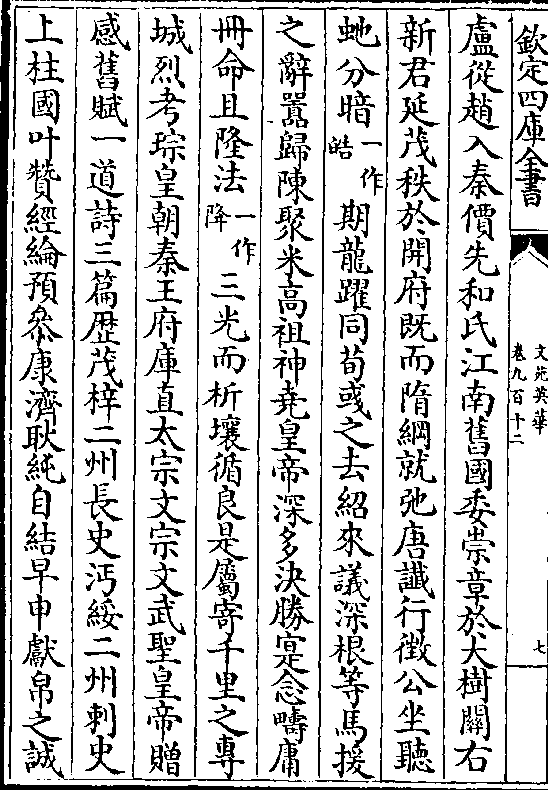 欽定四庫全書
文苑英華
卷九百十二
七
盧從趙入秦價先和氏江南舊國委崇章於大樹關右
新君延茂秩於開府既而隋綱就弛唐讖行徵公坐聽
虵分暗一作皓期龍躍同荀彧之去紹來議深根等馬援
之辭囂歸陳聚米高祖神堯皇帝深多決勝寔念疇庸
冊命且隆法一作降三光而析壤循良是屬寄千里之專
城烈考琮皇朝秦王府庫直太宗文宗文武聖皇帝贈
感舊賦一道詩三篇歴茂梓二州長史沔綏二州刺史
上柱國叶贊經綸預叅康濟耿純自結早申獻帛之誠